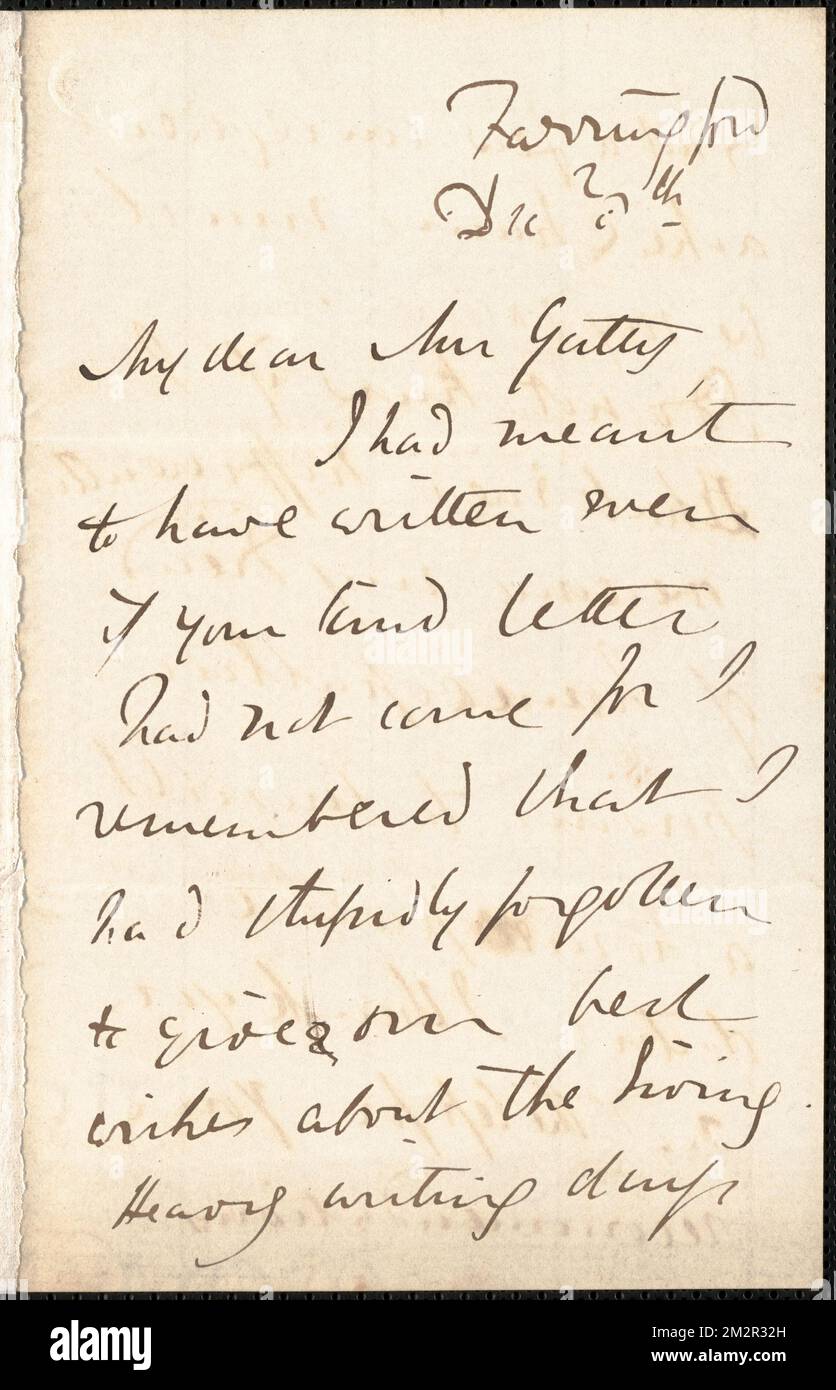 Farringford
Dec
My dear Mrs Gatty,
I had meant
to have written even
if your kind letter
had not come for I
remembered that I
had stupidly forgotten
to give our best
wishes about the living.
Heavy writing days
alamy
Image ID: 2M2R32H
www.alamy.com